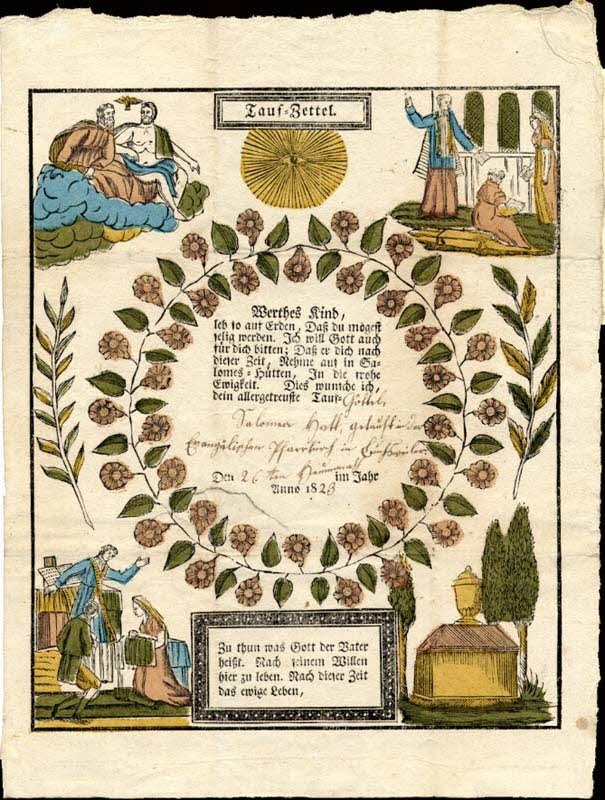 Tauf=Zettel.
Werthes Kind,
leb so auf Erden, Daß du mögest
selig werden. Ich will Gott auch
für dich bitten; Daß er dich nach
dieser Zeit, Nehme auf in Sa=
lomes=Hütten, In die frohe
Ewigkeit. Dies wünsche ich,
dein allergetreuste Tauf=Göttel,
Salomea Hott, getauft in der
Evangelischen Pfarrkirch in
Den 26ten im Jahr
Anno 1823
Zu thun was Gott der Vater
heißt. Nach seinem Willen
hier zu leben. Nach dieser Zeit
das ewige Leben,